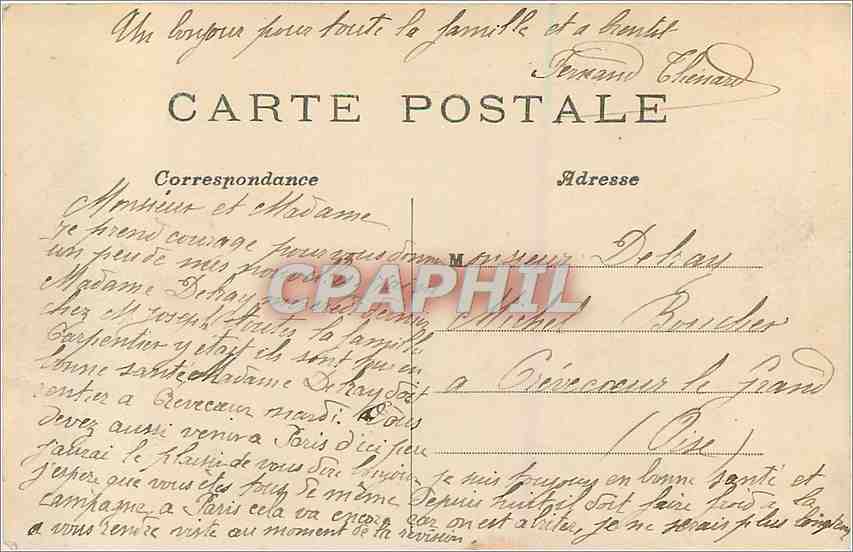 Un bonjour pour toute la famille et a bientot
Fernand Thénard
CARTE POSTALE
Correspondance
Adresse
Monsieur et Madame
Je prend courage pour vous donner
un peu de mes nouvelles
Madame Delray
chez M. Joseph toutes la famille
Carpentier y était ils sont tous en
bonne santé Madame Delray doit
rentrer a Crevecœur mardi. Vous
devez aussi venir a Paris d'ici peu
j'aurai le plaisir de vous dire bonjour
j'espere que vous etes tous de même
campagne a Paris cela va encore
a vous rendre visite au moment de la revision.
Monsieur Delray
Michel Boucher
a Crévecœur le Grand
(Oise)
je suis toujours en bonne santé et
Depuis huit il doit faire froid a la
car on est a je ne serais plus longtemps
CPAPHIL